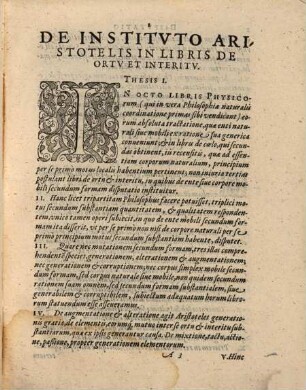 DE INSTITVTO ARI-
STOTELIS IN LIBRIS DE
ORTV ET INTERITV.
THESIS I.
IN OCTO LIBRIS PHYSICO-
rum, (qui in vera Philosophia naturalis
coordinatione primas sibi vendicant) eo-
rum absoluta tractatione, quæ enti naturali
sive mobili ex ratione sua generica
conveniunt: & in libris de cœlo, qui secun-
do obtinent, iis recensitis, quæ ad essenti-
am corporum naturalium, principium
per se primò motus localis habentium pertinent, non iniuria tertio
subsistunt libri de ortu & interitu, in quibus de ente sive corpore mo-
bili secundum formam disputatio instituitur.
II. Hanc licet tripartitam Philosophus facere potuisset, triplici mo-
tus secundum substantiam quantitatem, & qualitatem responden-
tem, unicè tamen operi subiectum quo de ente mobili secundum for-
mam ita disserit, ut per se primò non nisi de corpore naturali per se
primò principium motus secundum substantiam habente, disputet.
III. Quare nec mutationem secundum formam, tres illas compre-
hendentem species: generationem, alterationem, & augmentationem:
nec generationem & corruptionem: nec corpus simplex mobile secun-
dum formam, sed corpus naturale sive mobile, quod eiusdem genera-
tionem suam omnem secundum formam substantialem, sive, quod
generabilium & corruptibilem, subiectum adæquatum horum libro-
rum statuendum esse asseveramus.
IV. De augmentatione & alteratione agit Aristoteles generatio-
nis gratiâ, de elementis eorumque mutuo inter se ortu & interitu sub-
stantiarum, quæ ex ipsis generantur causa. De mixtione, tactu, actio-
ne, passione, propter generationem elementorum.
A 3
V. Hinc